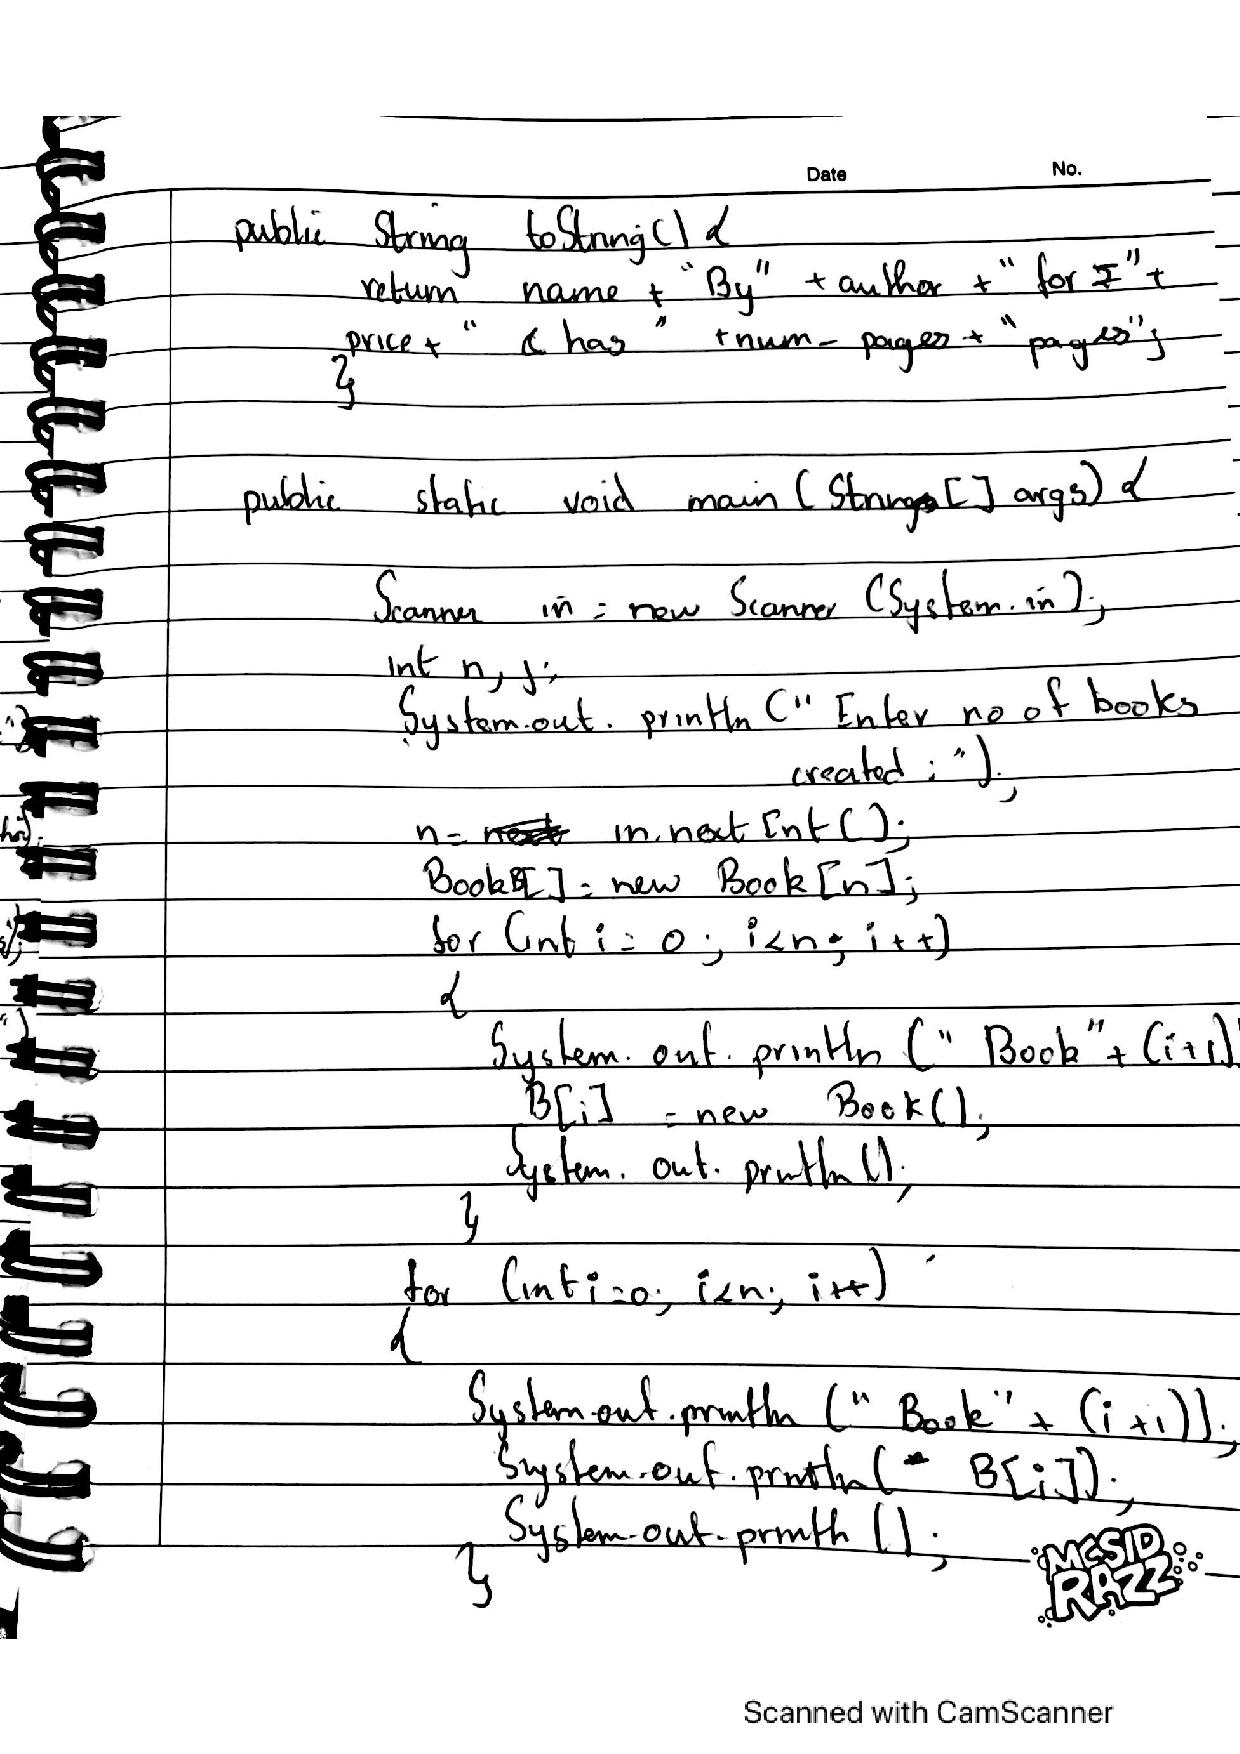 Date No.
public String toString() {
return name + "By" + author + "for ₹" +
price + " & has " + num_pages + "pages";
}
public static void main (String[] args) {
Scanner in = new Scanner (System.in);
int n, j;
System.out.println (" Enter no of books
created : ");
n = in.nextInt();
Book B[] = new Book[n];
for (int i = 0; i<n; i++)
{
System.out.println (" Book" + (i+1)
B[i] = new Book();
System.out.println();
}
for (int i=0; i<n; i++)
{
System.out.println (" Book" + (i+1));
System.out.println( B[i]);
System.out.println ();
}
MCSID
RAZZ
Scanned with CamScanner